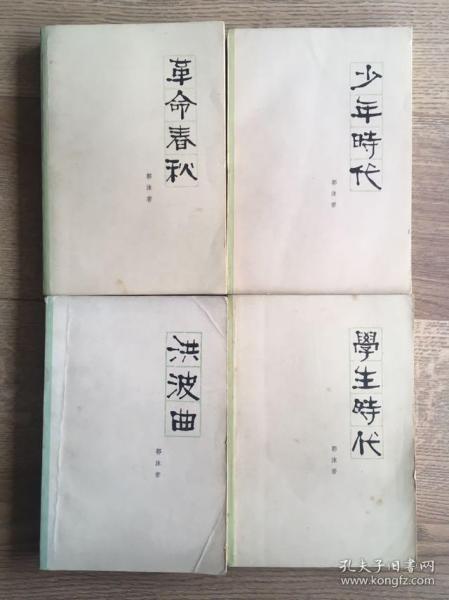 革命春秋
郭沫若
少年時代
郭沫若
洪波曲
郭沫若
學生時代
郭沫若
孔夫子旧书网
www.kongfz.com